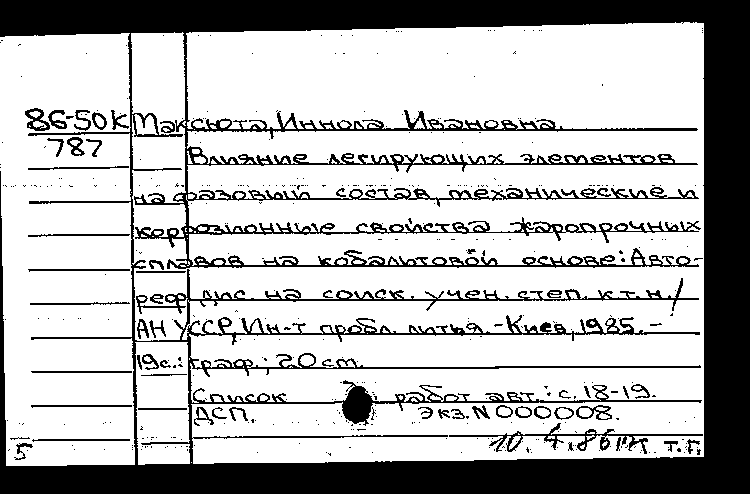 86-50К Максюта, Иннола Ивановна.
787
Влияние легирующих элементов
на фазовый состав, механические и
коррозионные свойства жаропрочных
сплавов на кобальтовой основе: Авто-
реф. дис. на соиск. учен. степ. к.т.н. /
АН УССР, Ин-т пробл. литья. - Киев, 1985. -
19с.: граф.; 20 см.
Список работ авт.: с. 18-19.
ДСП. Экз. N 000008.
10. 4. 86 т.г.
5